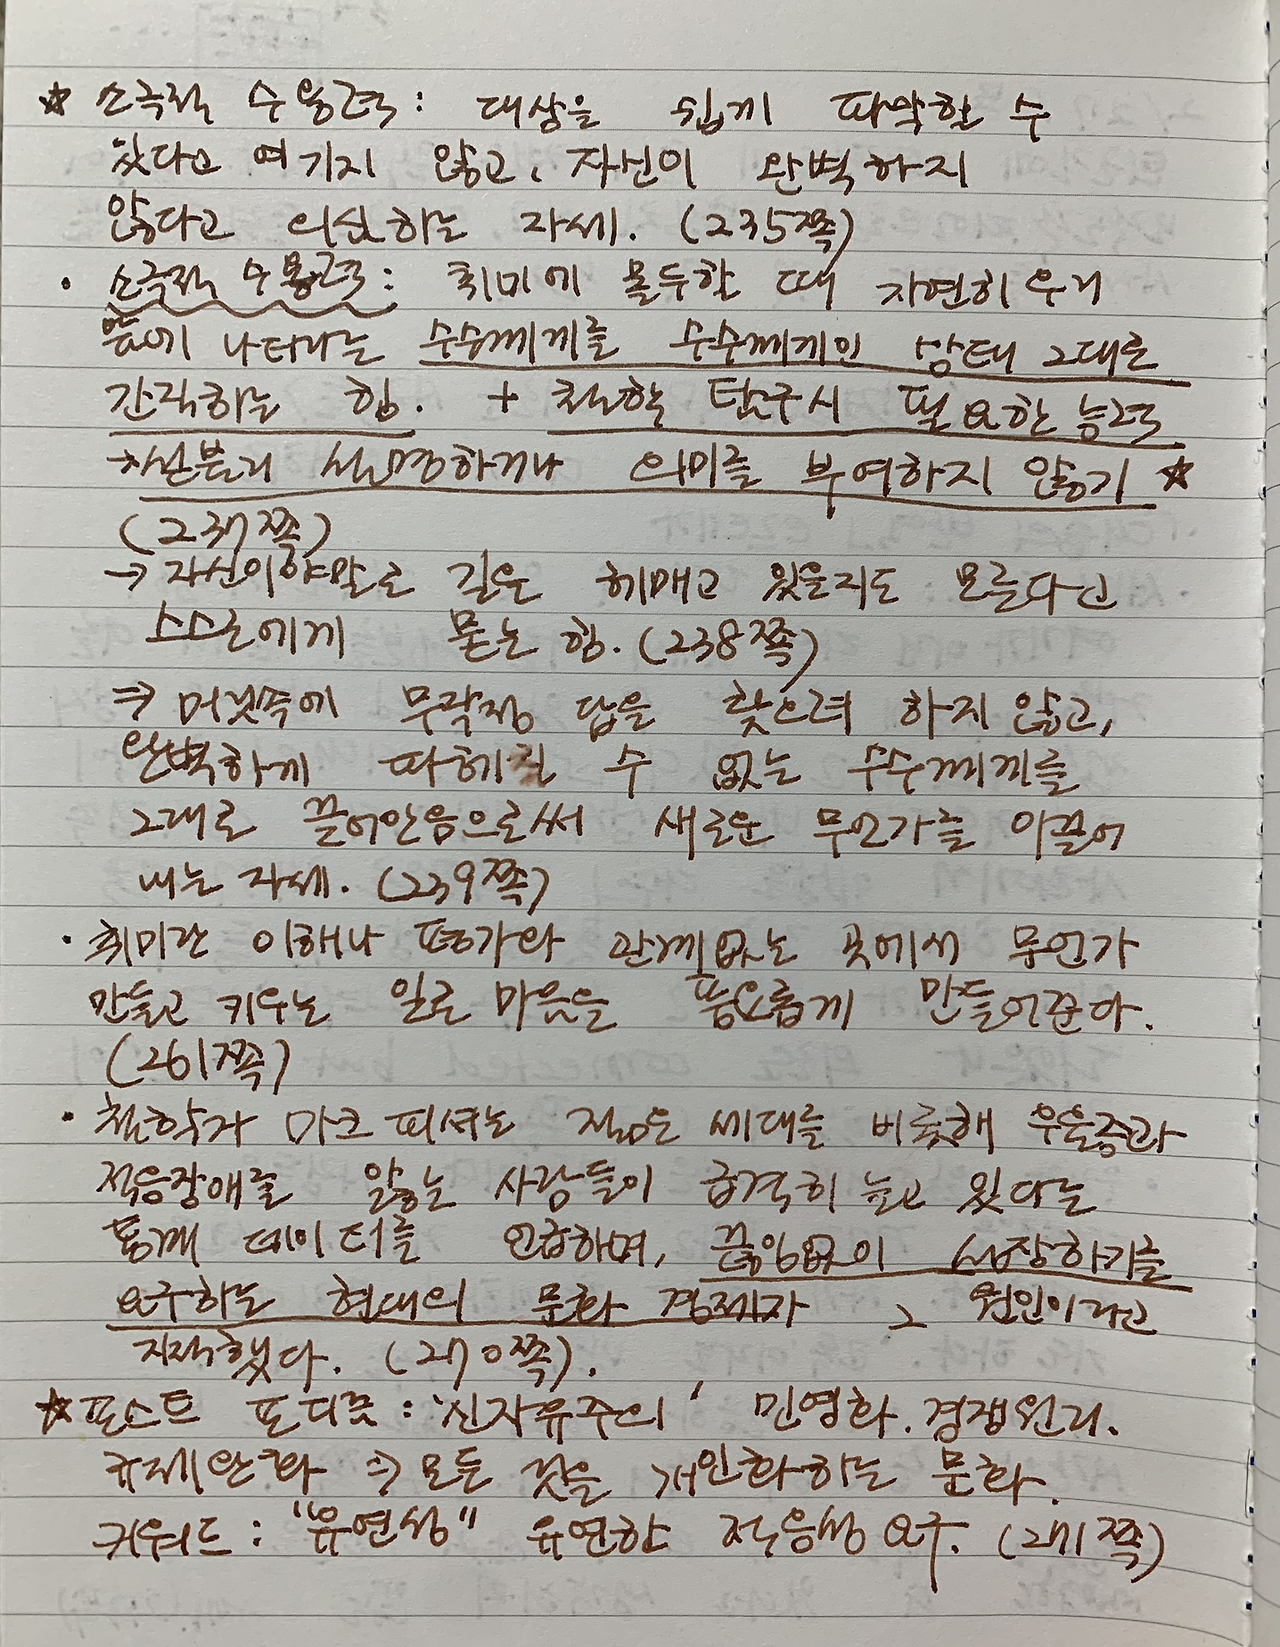 ☆ 소극적 수용력: 대상을 쉽게 파악할 수
있다고 여기지 않고, 자신이 완벽하지
않다고 의심하는 자세. (235쪽)
· 소극적 수용력: 취미에 몰두할 때 자연히 우리
앞에 나타나는 수수께끼를 수수께끼인 상태 그대로
간직하는 힘. + 철학 탐구시 필요한 능력
→섣불리 설명하거나 의미를 부여하지 않기 ☆
(237쪽)
→ 자신이야말로 길을 헤매고 있을지도 모른다고
스스로에게 묻는 힘. (238쪽)
⇒ 머릿속에 무작정 답을 찾으려 하지 않고,
완벽하게 파헤칠 수 없는 수수께끼를
그대로 끌어안음으로써 새로운 무언가를 이끌어
내는 자세. (239쪽)
· 취미란 이해나 평가와 관계없는 곳에서 무언가
만들고 키우는 일로 마음을 풍요롭게 만들어준다.
(261쪽)
· 철학자 마크 피셔는 젊은 세대를 비롯해 우울증과
적응장애를 앓는 사람들이 급격히 늘고 있다는
통계 데이터를 언급하며, 끊임없이 성장하기를
요구하는 현대의 문화 경제가 그 원인이라고
지적했다. (270쪽).
☆ 포스트 포디즘: '신자유주의' 민영화. 경쟁원리.
규제완화 ⇒ 모든 것을 개인화하는 문화.
키워드: "유연성" 유연한 적응성 요구. (271쪽)